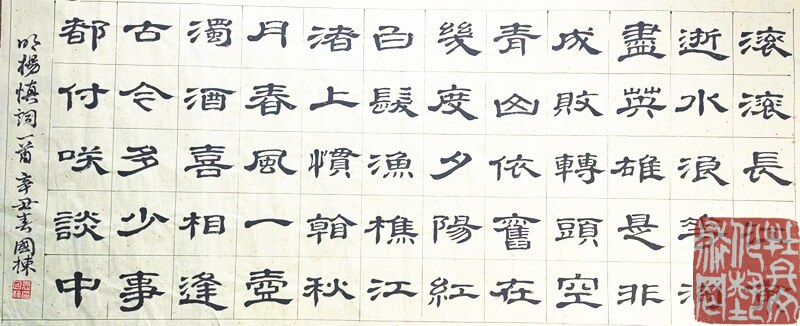 滾滾長
逝水浪
盡英雄是非
成敗轉頭空
青山依舊在
幾度夕陽紅
白髮漁樵江
渚上慣看秋
月春風一壺
濁酒喜相逢
古今多少事
都付咲談中
明楊慎詞一首 辛丑春國棟